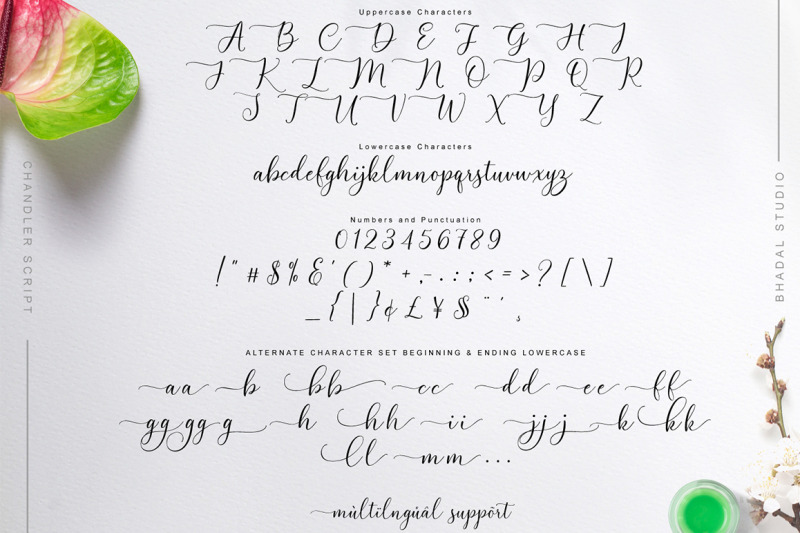 Uppercase Characters
A B C D E F G H I
J K L M N O P Q R
S T U V W X Y Z
Lowercase Characters
abcdefghijklmnopqrstuvwxyz
Numbers and Punctuation
0123456789
! " # $ % & ' ( ) * + , - . : ; < = > ? [ \ ]
_ { | } ¢ £ ¥ § ¨ ´ ¸
ALTERNATE CHARACTER SET BEGINNING & ENDING LOWERCASE
aa b bb cc dd ee ff
gg gg g h hh ii jj j k kk
ll mm ...
CHANDLER SCRIPT
BHADAL STUDIO